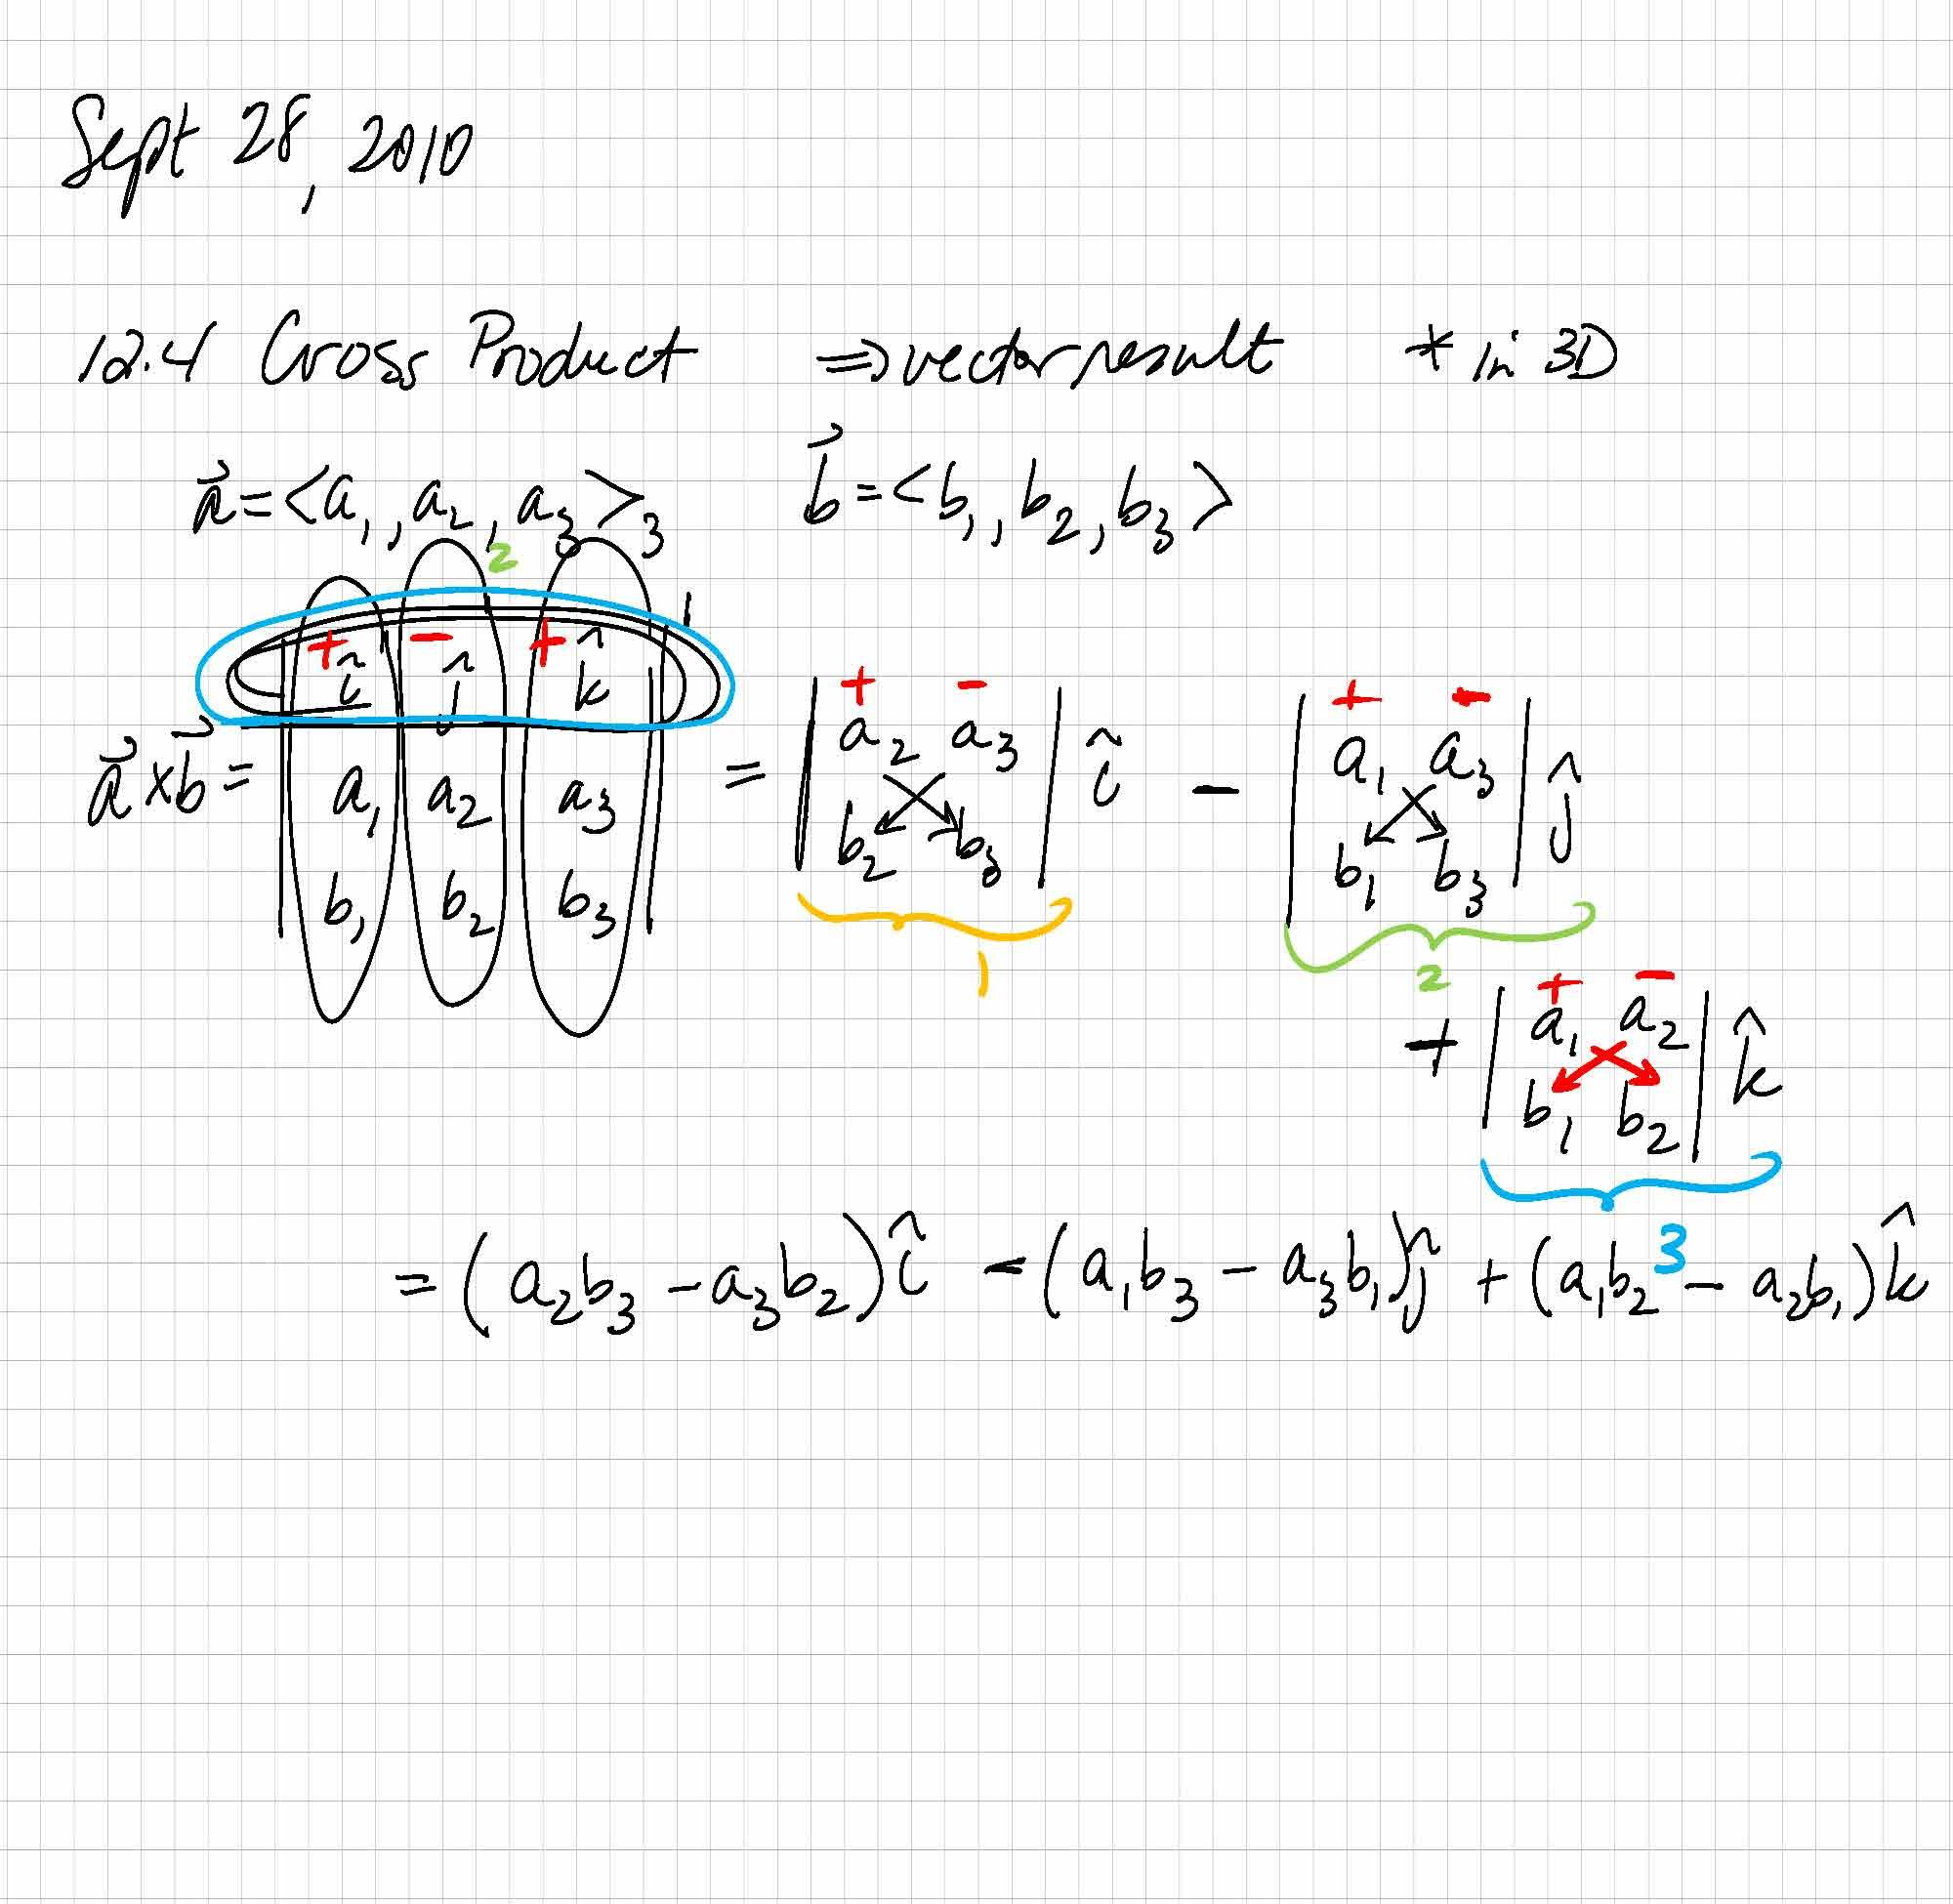 Sept 28, 2010
12.4 Cross Product ⇒ vector result * in 3D
a⃗ = <a₁, a₂, a₃> b⃗ = <b₁, b₂, b₃>
2 3
1
+ - +
î ĵ k̂
a⃗ × b⃗ = | a₁ a₂ a₃ | = | a₂ a₃ | î - | a₁ a₃ | ĵ
b₁ b₂ b₃ b₂ b₃ b₁ b₃
+ - + -
1 2
+ -
+ | a₁ a₂ | k̂
b₁ b₂
3
= (a₂b₃ - a₃b₂) î - (a₁b₃ - a₃b₁) ĵ + (a₁b₂ - a₂b₁) k̂